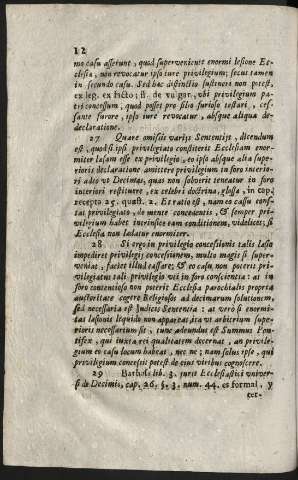 12
mo casu asserunt, quod superveniente enormi lesione Ecclesia,
non revocatur ipso iure privilegium; secus tamen
in secundo casu. Sed hæc distinctio sustineri non potest,
ex leg. ex facto; ff. de vulgar. ubi privilegium patri
concessum, quod posset pro filio furioso testari, cessante
furore, ipso iure revocatur, absque aliqua dedeclaratione.
27 Quare omissis varijs Sententijs, dicendum
est, quod si ipsi privilegiato constiterit Ecclesiam enormiter
læsam esse ex privilegio, eo ipso absque alia superioris
declaratione amittere privilegium in foro interiori
adeo ut Decimas, quas non solverit teneatur in foro
interiori restituere, ex celebri doctrina, glossa, in cap.
recepto 25. quæst. 2. Et ratio est, nam eo casu constat
privilegiato, de mente concedentis, & semper privilegium
habet intrinsece eam conditionem, videlicet, si
Ecclesia non lædatur enormiter.
28 Si ergo in privilegio concessionis talis læsio
impediret privilegij concessionem, multo magis si superveniat,
faciet illud cessare; & eo casu non poterit privilegiatus
tali privilegio uti in foro conscientia: at in
foro contentioso non poterit Ecclesia parochialis propria
auctoritate cogere Religiosos ad decimarum solutionem,
sed necessaria est Iudicis Sententia: at vero si enormitas
læsionis liquido non appareat, ita ut arbitrium superioris
necessarium sit, tunc adeundus est Summus Pontifex,
qui iuxta rei qualitatem decernat, an privilegium
eo casu locum habeat, nec ne; nam solus ipse, qui
privilegium concessit potest de eius viribus cognoscere.
29 Barbosa lib. 3. iuris Ecclesiastici universi
de Decimis, cap. 26. §. 3. num. 44. es formal, y